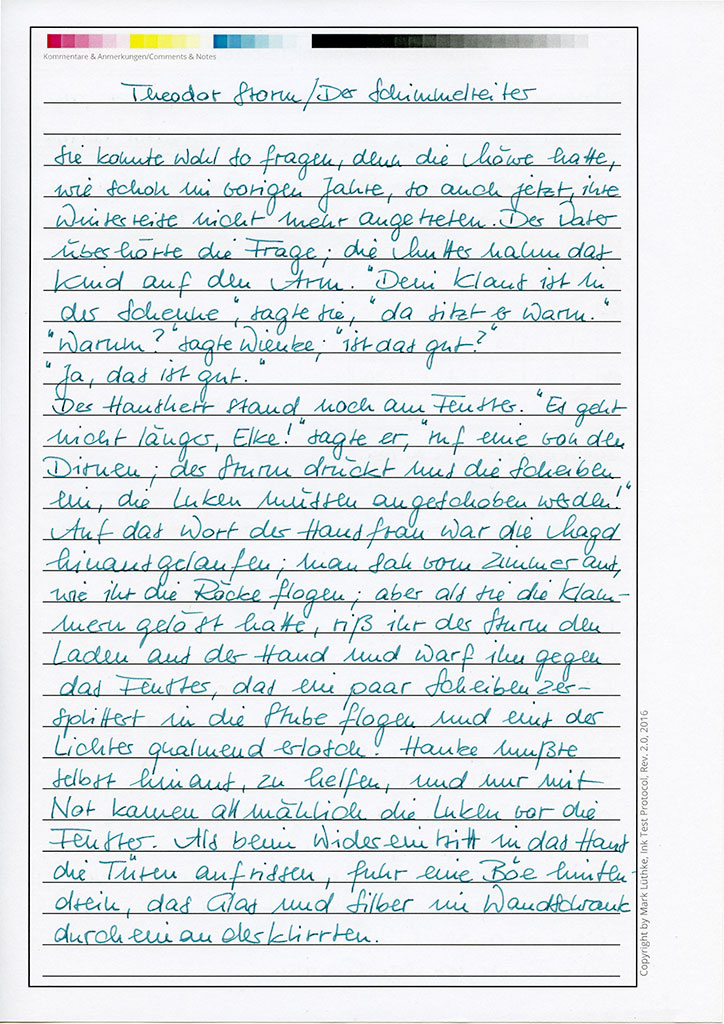 Kommentare & Anmerkungen/Comments & Notes
Theodor Storm/Der Schimmelreiter
Sie konnte wohl so fragen, denn die Möwe hatte,
wie schon im vorigen Jahre, so auch jetzt, ihre
Winterreise nicht mehr angetreten. Der Vater
überhörte die Frage; die Mutter nahm das
Kind auf den Arm. "Dein Klaus ist in
der Scheune", sagte sie, "da sitzt er warm."
"Warum?" sagte Wienke, "ist das gut?"
"Ja, das ist gut."
Der Hausherr stand noch am Fenster. "Es geht
nicht länger, Elke!" sagte er, "ruf eine von den
Dirnen; der Sturm drückt uns die Scheiben
ein, die Luken müssen angeschoben werden!"
Auf das Wort der Hausfrau war die Magd
hinausgelaufen; man sah vom Zimmer aus,
wie ihr die Röcke flogen; aber als sie die Klam-
mern gelöst hatte, riß ihr der Sturm den
Laden aus der Hand und warf ihn gegen
das Fenster, das ein paar Scheiben zer-
splittert in die Stube flogen und eins der
Lichter qualmend erlosch. Hauke mußte
selbst hinaus, zu helfen, und nur mit
Not kamen allmählich die Luken vor die
Fenster. Als beim Widereintritt in das Haus
die Türen aufrissen, fuhr eine Böe hinten
drein, das Glas und Silber im Wandschrank
durcheinanderklirrten.
Copyright by Mark Lüthke, Ink Test Protocol, Rev. 2.0, 2016